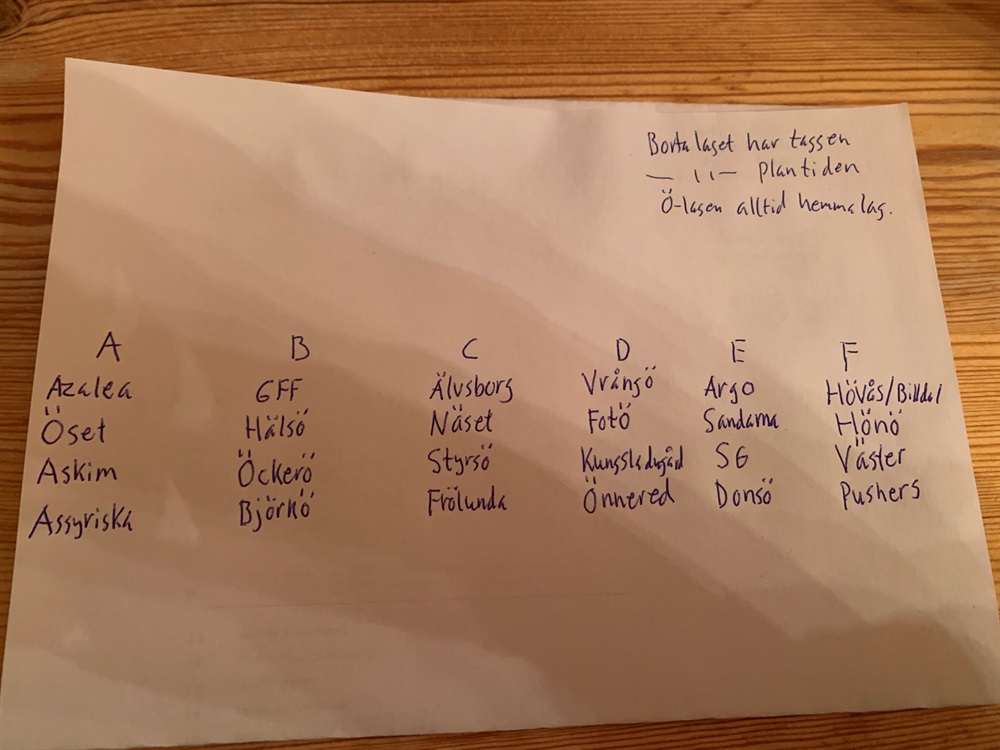 Bortalaget har tassen
— ıı — plantiden
Ö-lagen alltid hemmalag.
A B C D E F
Azalea GFF Älvsborg Vrångö Argo Hövås/Billdal
Öset Hälsö Näset Fotö Sandarna Hönö
Askim Öckerö Styrsö Kungsladugård SG Väster
Assyriska Björkö Frölunda Önnered Donsö Pushers